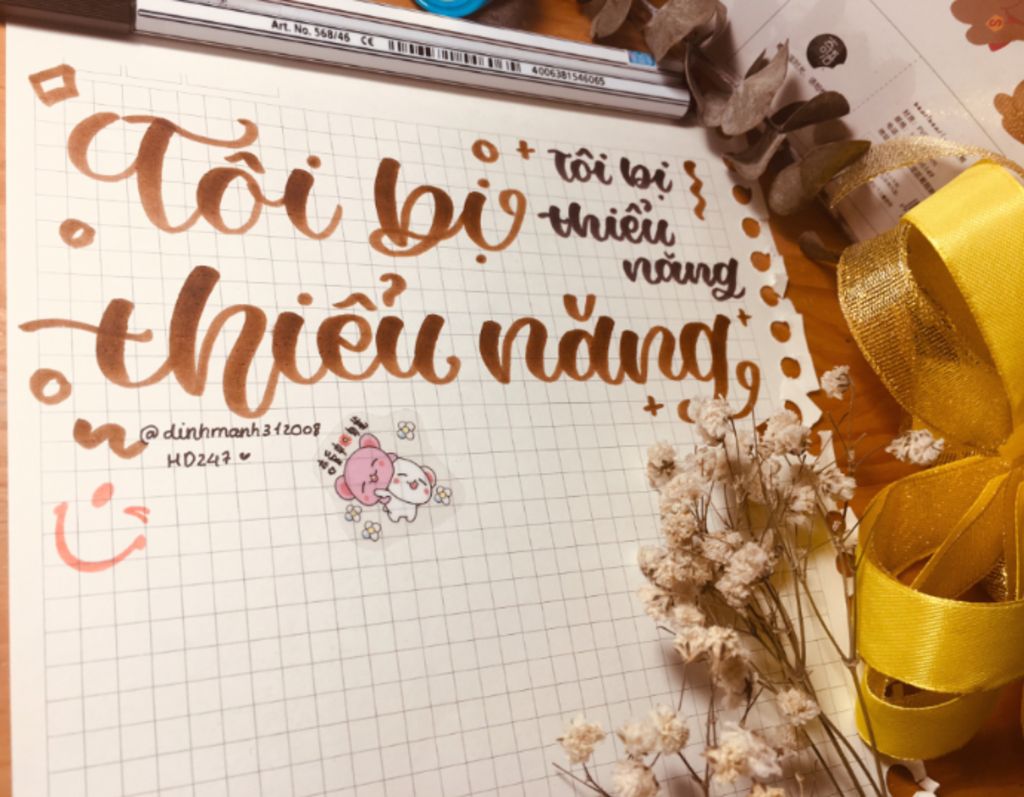 Art. No. 568/46 CE
4006381546065
Tôi bị
thiểu năng
tôi bị
thiểu
năng
@dinhmanh312008
HD247 ♥